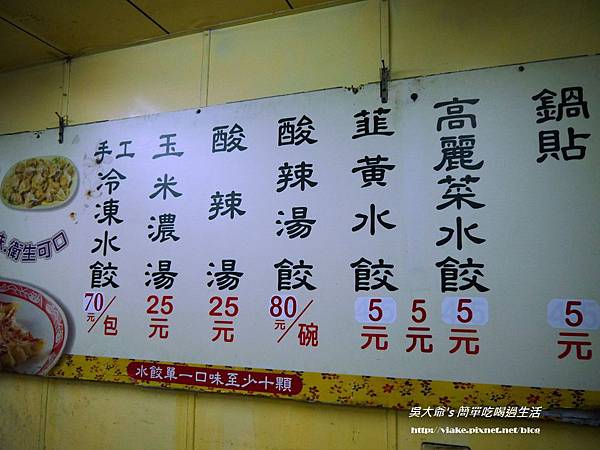 鍋貼
5元
高麗菜水餃
5元
5元
韮黃水餃
5元
酸辣湯餃
80元/碗
酸辣湯
25元
玉米濃湯
25元
手工冷凍水餃
70元/包
味.衛生可口
水餃單一口味至少十顆
吳大爺's 簡單吃喝過生活
http://viake.pixnet.net/blog